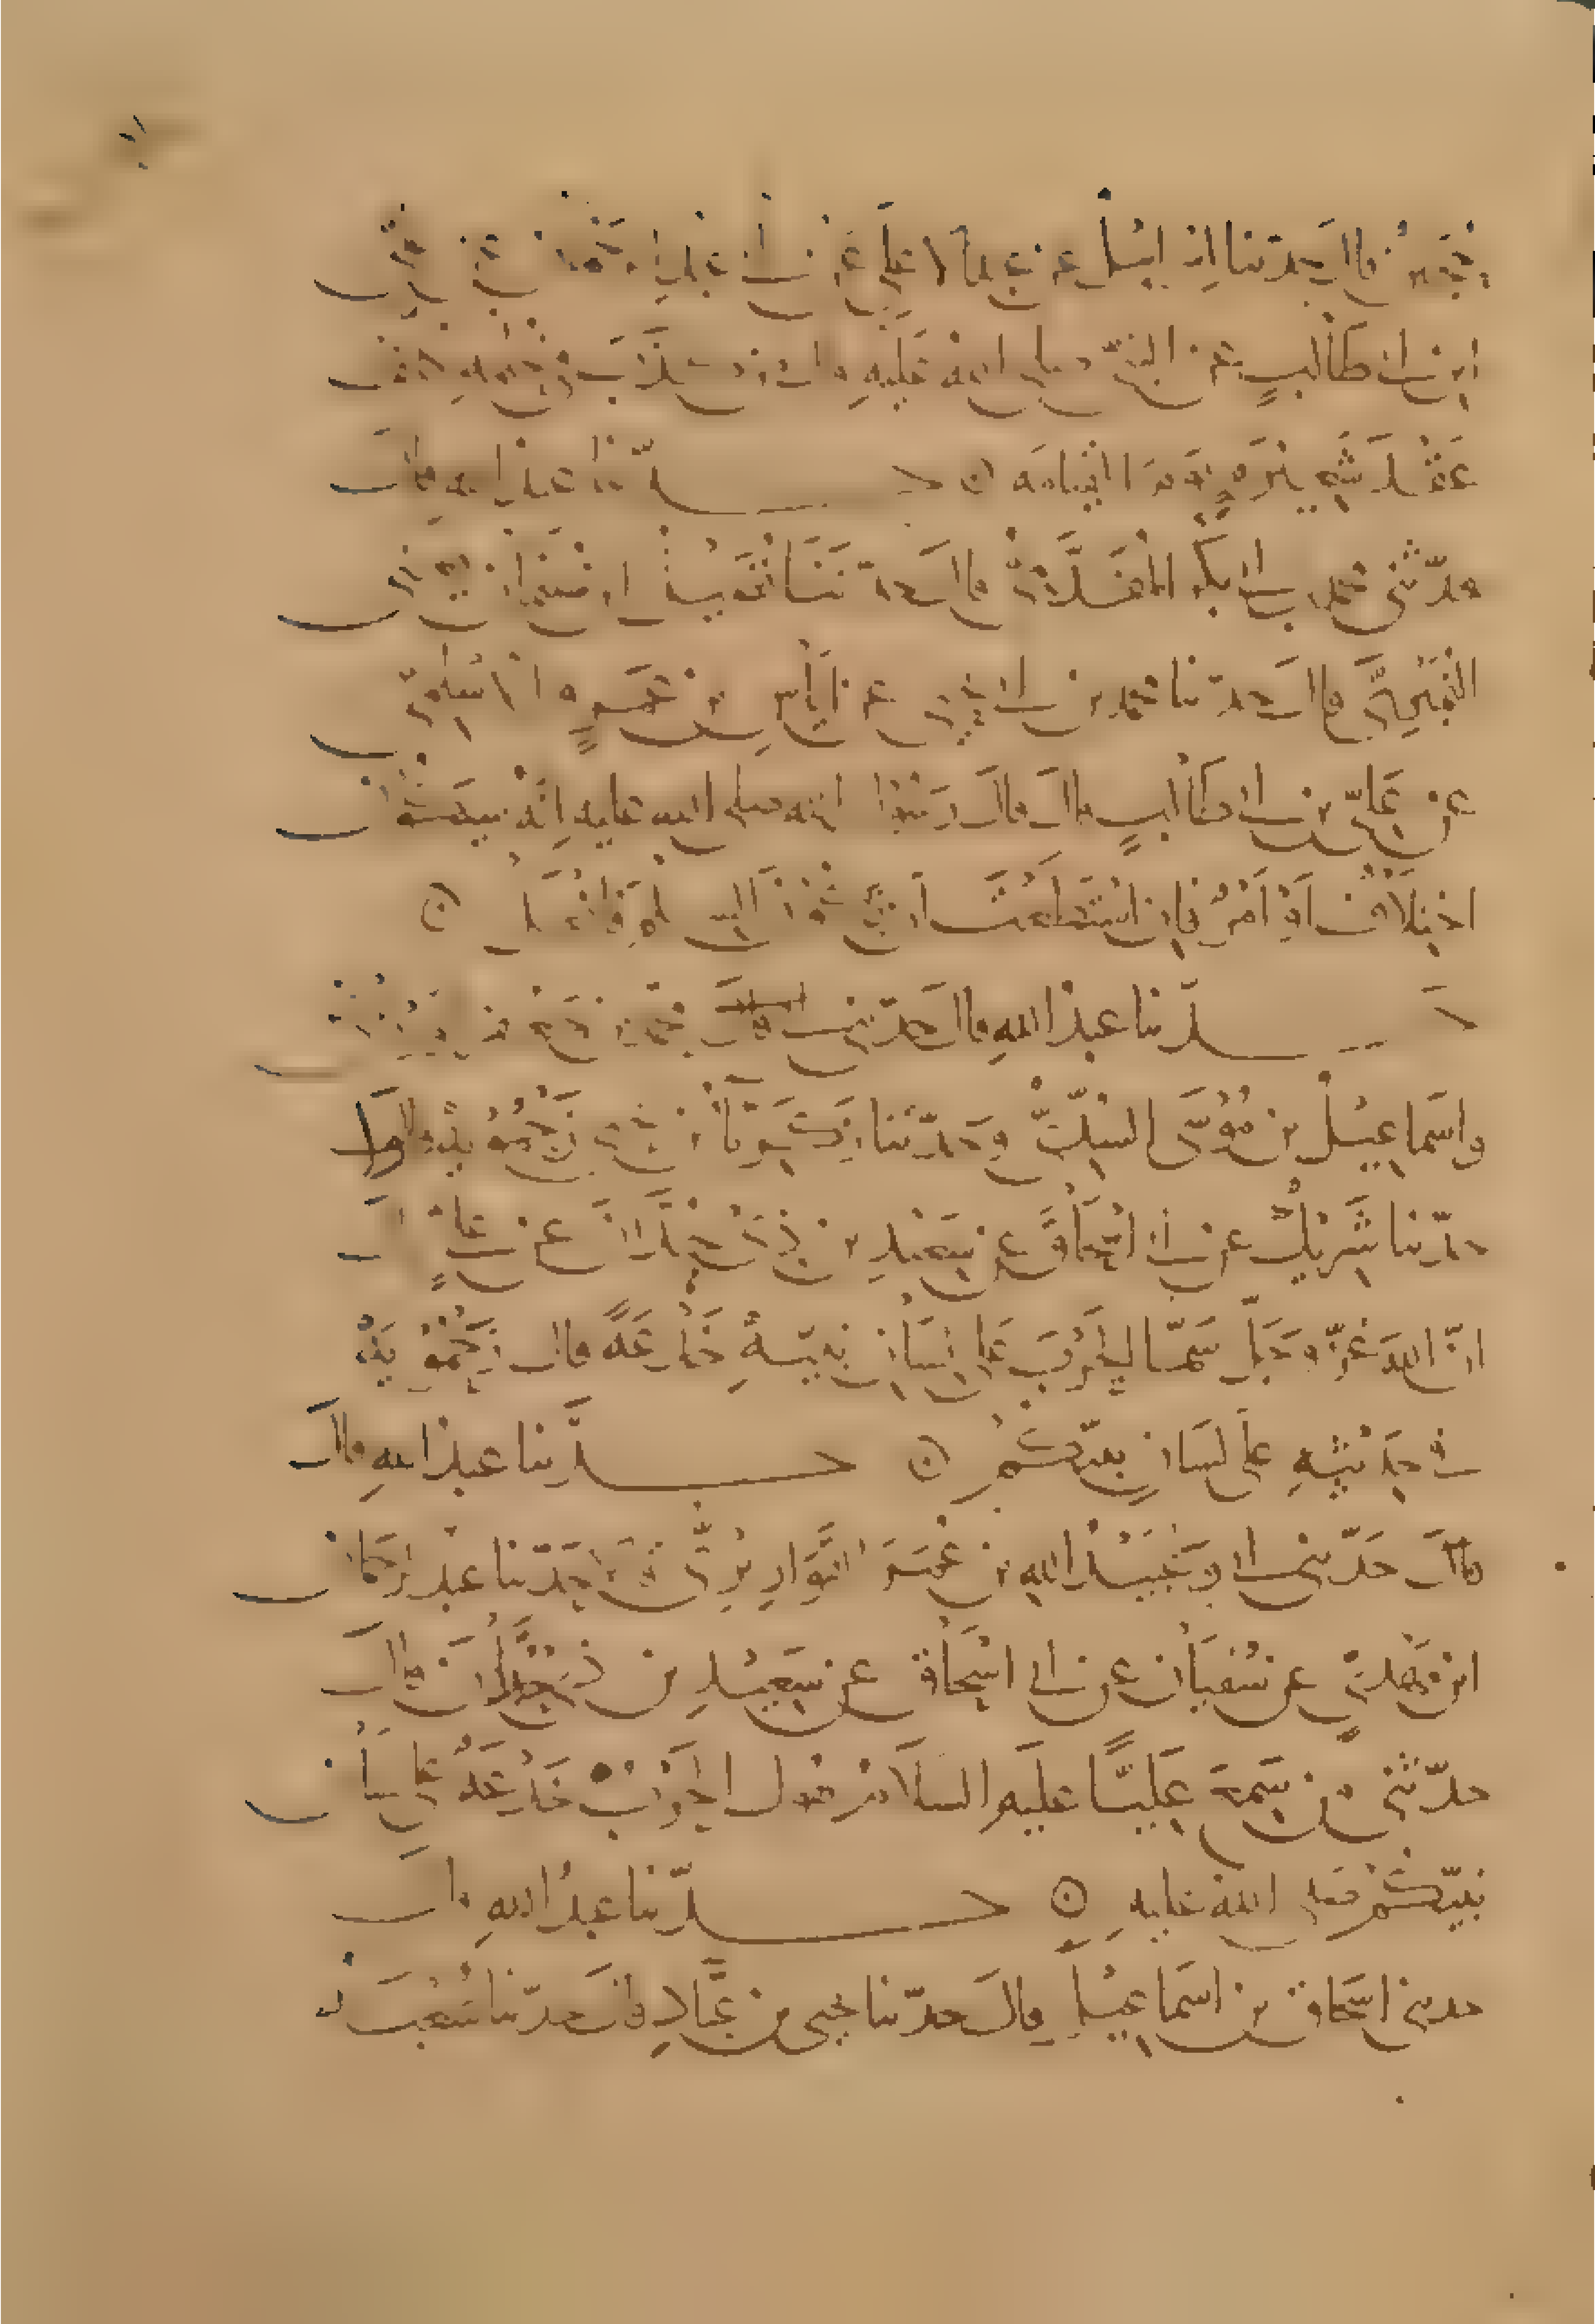 قال حدثنا اسرائيل عن عبد الاعلى عن ابي عبد الرحمن عن علي
ابن ابي طالب عن النبي صلى الله عليه قال من كذب في حلمه كلف
عقد شعيرة يوم القيامة ۞ حدثنا عبد الله قال
حدثني محمد بن ابي بكر المقدمي قال حدثنا فضيل بن سليمان يعني
النميري قال حدثنا محمد بن ابي يحيى عن اياس بن عمرو الاسلمي
عن علي بن ابي طالب قال قال رسول الله صلى الله عليه انه سيكون
اختلاف او امر فان استطعت ان تكون السلم فافعل ۞
حدثنا عبد الله قال حدثني محمد بن جعفر
واسماعيل بن موسى السدي وحدثنا زكريا بن يحيى زحمويه قالوا
حدثنا شريك عن ابي اسحاق عن سعيد بن ذي حدان عن علي قال
ان الله عز وجل سما الحرب على لسان نبيه خدعة قال زحمويه
في حديثه على لسان نبيكم ۞ حدثنا عبد الله قال
قال حدثني ابي وعبيد الله بن عمر القواريري قالا حدثنا عبد الرحمان
ابن مهدي عن سفيان عن ابي اسحاق عن سعيد بن ذي حدان قال
حدثني من سمع عليا عليه السلام يقول الحرب خدعة على لسان
نبيكم صلى الله عليه ۞ حدثنا عبد الله قال
حدثني اسحاق بن اسماعيل قال حدثنا يحيى بن عباد قال حدثنا شعبة